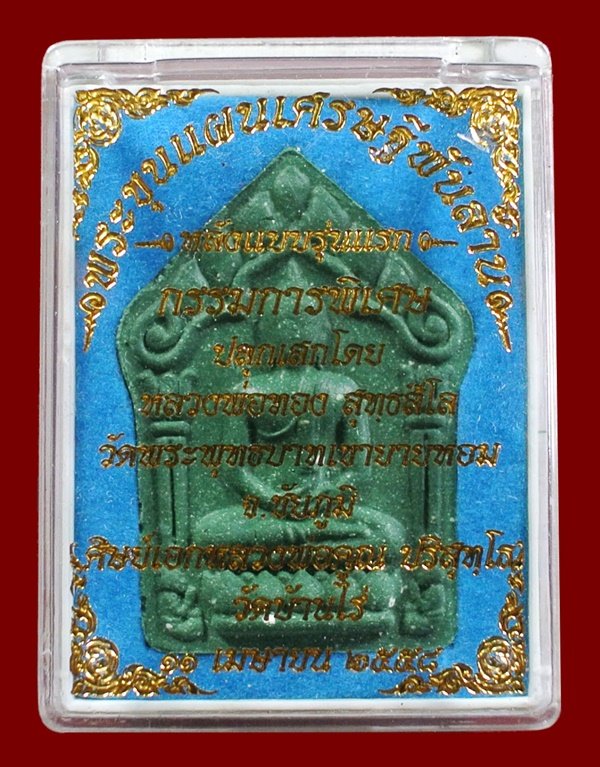 พระขุนแผนเศรษฐีพันล้าน
หลังแบบรุ่นแรก
กรรมการพิเศษ
ปลุกเสกโดย
หลวงพ่อทอง สุทฺธสีโล
วัดพระพุทธบาทเขายายหอม
จ.ชัยภูมิ
(ศิษย์เอกหลวงพ่อคูณ ปริสุทฺโธ)
วัดบ้านไร่
๑๑ เมษายน ๒๕๕๘